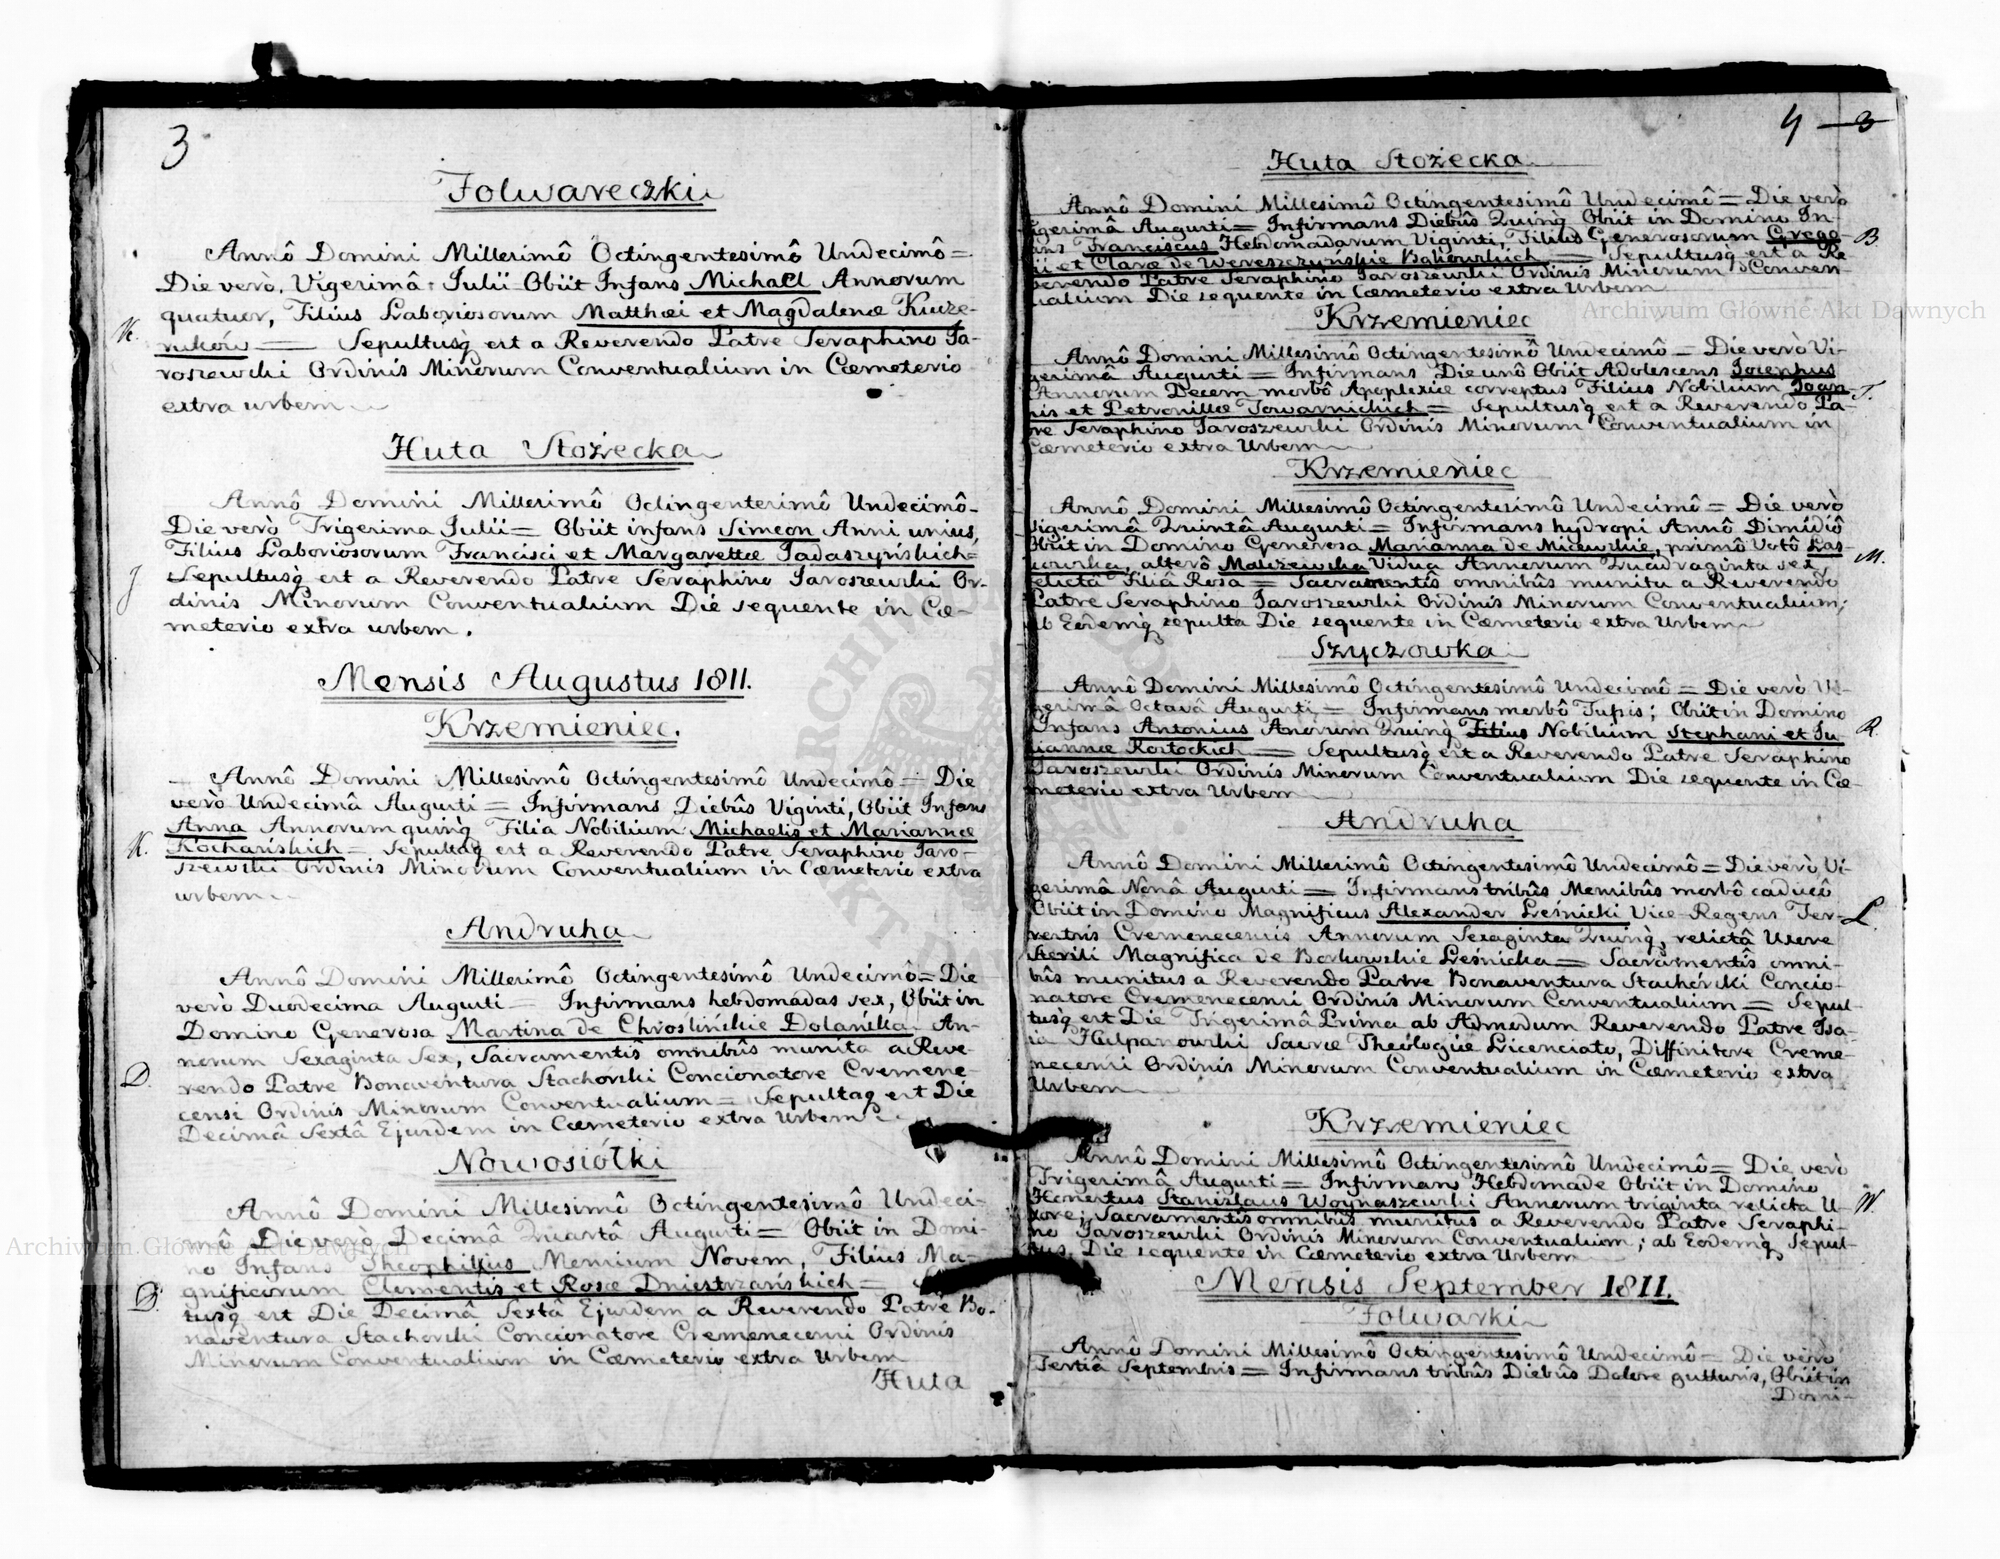 3
Folwareczki
Annô Domini Millesimô Octingentesimô Undecimô =
Die verò, Vigesimâ Iulii Obiit Infans Michael Annorum
quatuor, Filius Laboriosorum Matthæi et Magdalenæ
K.
Sepultusq̀ est a Reverendo Patre Seraphino Ja-
roszewski Ordinis Minorum Conventualium in Cœmeterio
extra urbem
Huta Stożecka
Annô Domini Millesimô Octingentesimô Undecimô
Die verò Trigesima Julii = Obiit infans Simeon Anni unius,
Filius Laboriosorum Francisci et Margarettæ Jadaszyńskich =
J
Sepultusq̀ est a Reverendo Patre Seraphino Jaroszewski Or-
dinis Minorum Conventualium Die sequente in Cœ-
meterio extra urbem.
Mensis Augustus 1811.
Krzemieniec.
Annô Domini Millesimô Octingentesimô Undecimô = Die
verò Undecimâ Augusti = Infirmans Diebûs Viginti, Obiit Infans
Anna Annorum quinq̀ Filia Nobilium Michaelis et Mariannæ
K.
Kochańskich = Sepultaq̀ est a Reverendo Patre Seraphino Jaro-
szewski Ordinis Minorum Conventualium in Cœmeterio extra
urbem
Andruha
Annô Domini Millesimô Octingentesimô Undecimô = Die
verò Duodecima Augusti = Infirmans hebdomadas sex, Obiit in
Domino Generosa Martina de Chroślińskie Dolańska An-
norum Sexaginta Sex, Sacramentis omnibûs munita a Reve-
D.
rendo Patre Bonaventura Stachórski Concionatore Cremene-
censi Ordinis Minorum Conventualium = Sepultaq̀ est Die
Decimâ Sextâ Ejusdem in Cœmeterio extra Urbem
Nowosiółki
Annô Domini Millesimô Octingentesimô Undeci-
mô Die verò Decimâ Quartâ Augusti = Obiit in Domi-
no Infans Theophillus Mensium Novem, Filius Ma-
gnificorum Clementis et Rosæ Dniestrzańskich =
D.
tusq̀ est Die Decimâ Sextâ Ejusdem a Reverendo Patre Bo-
naventura Stachorski Concionatore Cremenecensi Ordinis
Minorum Conventualium in Cœmeterio extra Urbem
Huta
4 3
Huta Stożecka
Annô Domini Millesimô Octingentesimô Undecimô = Die verò
igesimâ Augusti = Infirmans Diebûs Quinq̀ Obiit in Domino In-
ans Franciscus Hebdomadarum Viginti, Filius Generosorum Grego-
B.
ii et Claræ de Wereszczyńskie = Sepultusq̀ est a Re
verendo Patre Seraphino Jaroszewski Ordinis Minorum Conven-
tualium Die sequente in Cœmeterio extra Urbem
Krzemieniec
Annô Domini Millesimô Octingentesimô Undecimô = Die verò Vi-
gesimâ Augusti = Infirmans Die unô Obiit Adolescens Josephus
Annorum Decem morbô Apoplexiæ correptus Filius Nobilium Joan-
T.
nis et Petronillæ Towarnickich = Sepultusq̀ est a Reverendo Pa-
tre Seraphino Jaroszewski Ordinis Minorum Conventualium in
Cœmeterio extra Urbem
Krzemieniec
Annô Domini Millesimô Octingentesimô Undecimô = Die verò
Vigesimâ Quintâ Augusti = Infirmans hydropi Annô Dimidiô
Obiit in Domino Generosa Marianna de Micewskie, primô Votô Las-
kowska, alterô Malczewska Vidua Annorum Quadraginta sex,
M.
relictâ Filiâ Rosa = Sacramentis omnibûs munita a Reverendo
Patre Seraphino Jaroszewski Ordinis Minorum Conventualium;
ab Eodemq̀ sepulta Die sequente in Cœmeterio extra Urbem
Szyczowka
Annô Domini Millesimô Octingentesimô Undecimô = Die verò Vi-
gesimâ Octavâ Augusti = Infirmans morbô Tussis; Obiit in Domino
Infans Antonius Anorum Quinq̀ Filius Nobilium Stephani et Ju
R.
liannæ = Sepultusq̀ est a Reverendo Patre Seraphino
Jaroszewski Ordinis Minorum Conventualium Die sequente in Cœ-
meterio extra Urbem
Andruha
Annô Domini Millesimô Octingentesimô Undecimô = Die verò Vi-
gesimâ Nonâ Augusti = Infirmans tribûs Mensibûs morbô caducô
Obiit in Domino Magnificus Alexander Leśnicki Vice-Regens Ter-
L.
restris Cremenecensis Annorum Sexaginta Quinq̀, relictâ Uxore
sterili Magnifica de Borkowskie Leśnicka = Sacramentis omni-
bûs munitus a Reverendo Patre Bonaventura Stachórski Concio-
natore Cremenecensi Ordinis Minorum Conventualium = Sepul-
tusq̀ est Die Trigesimâ Primâ ab Admodum Reverendo Patre Isa-
ia Sacræ Theologiæ Licenciato, Diffinitore Creme-
necensi Ordinis Minorum Conventualium in Cœmeterio extra
Urbem
Krzemieniec
Annô Domini Millesimô Octingentesimô Undecimô = Die verò
Trigesimâ Augusti = Infirmans Hebdomade Obiit in Domino
Honestus Stanislaus Woynaszewski Annorum triginta relicta U-
W.
xore; Sacramentis omnibûs munitus a Reverendo Patre Seraphi-
no Jaroszewski Ordinis Minorum Conventualium; ab Eodemq̀ Sepul-
tus. Die sequente in Cœmeterio extra Urbem
Mensis September 1811.
Folwarki
Annô Domini Millesimô Octingentesimô Undecimô = Die verò
Tertiâ Septembris = Infirmans tribûs Diebûs Dolore gutturis, Obiit in
Domi-
Archiwum Główne Akt Dawnych
Archiwum Główne Akt Dawnych